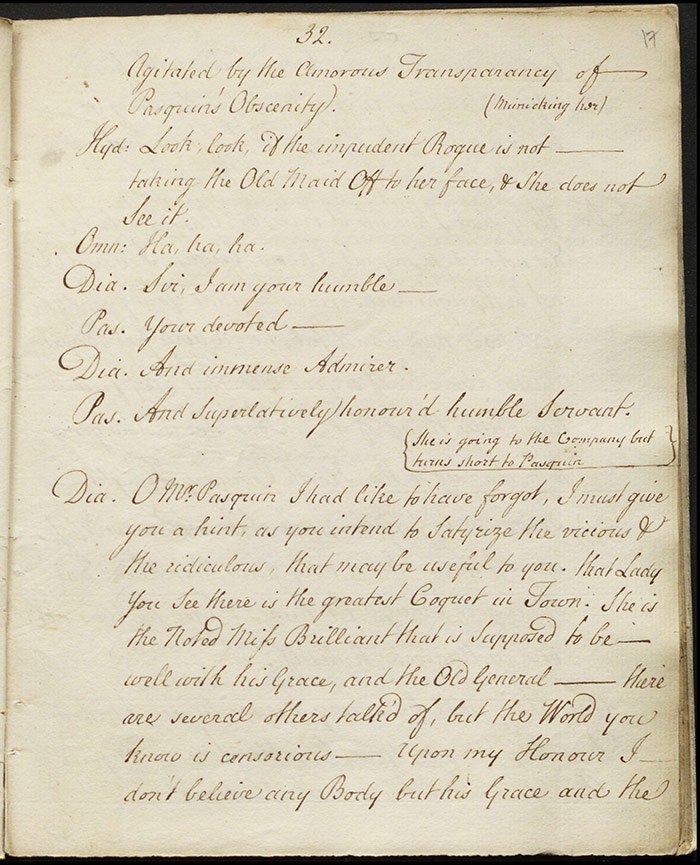 32.
17
Agitated by the Amorous Transparancy of —
Pasquin's Obscenity). (Mimicking her)
Hyd: Look, look, if the impudent Rogue is not —
taking the Old Maid Off to her face, & She does not
See it.
Omn: Ha, ha, ha.
Dia. Sir, I am your humble —
Pas. Your devoted —
Dia. And immense Admirer.
Pas. And Superlatively honour'd humble Servant.
{She is going to the Company but
turns short to Pasquin}
Dia. O Mr. Pasquin I had like to have forgot, I must give
you a hint, as you intend to Satyrize the vicious &
the ridiculous, that may be useful to you. that Lady
You See there is the greatest Coquet in Town. She is
the Noted Miss Brilliant that is Supposed to be —
well with his Grace, and the Old General — there
are several others talk'd of, but the World you
know is censorious — Upon my Honour I —
don't believe any Body but his Grace and the